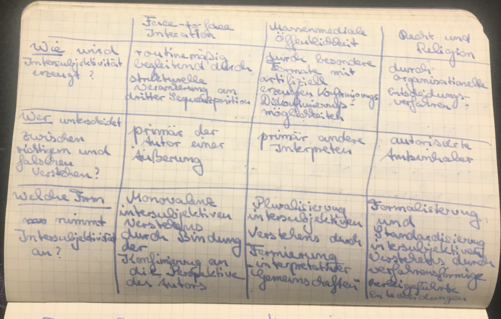 Face-to-face
Interaktion
Massenmediale
Öffentlichkeit
Recht und
Religion
Wie wird
Intersubjektivität
erzeugt?
routinemäßig
begleitend durch
strukturelle
Verankerung an
dritter Sequenzposition
durch besondere
Formate mit
artifiziell
erzeugten
Diskussionsmöglichkeiten
durch
organisationelle
Entscheidungs-
verfahren
Wer entscheidet
zwischen
richtigem und
falschem
Verstehen?
primär der
Autor einer
Äußerung
primär andere
Interpreten
autorisierte
Amtsinhaber
Welche Form
nimmt
Intersubjektivität
an?
Monovalenz
intersubjektiven
Verstehens
durch Bindung
der
Konfirmierung an
die Perspektive
des Autors
Pluralisierung
intersubjektiven
Verstehens durch
Formierung
interpretativer
Gemeinschaften
Formalisierung
und
Standardisierung
intersubjektiven
Verstehens durch
verfahrensförmige
herbeigeführte
Entscheidungen